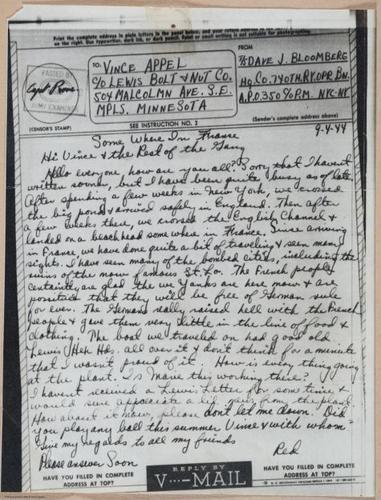 Print the complete address in plain letters in the panel below, and your return address in the space provided
on the right. Use typewriter, dark ink, or dark pencil. Faint or small writing is not suitable for photographing.
PASSED BY
ARMY EXAMINER
(CENSOR'S STAMP)
TO:
VINCE APPEL
C/O LEWIS BOLT & NUT CO.
504 MALCOLMN AVE. S.E.
MPLS. MINNESOTA
FROM
T/5 DAVE J. BLOOMBERG
HQ. CO. 740TH. RY. OPR. BN.
A.P.O. 350 %P.M. NYC-NY
(Sender's complete address above)
SEE INSTRUCTION NO. 2
9-4-44
Some Where In France
Hi Vince & the Rest of the Gang
Hello everyone, how are you all? Sorry that I haven't
written sooner, but I have been quite busy as of late.
After spending a few weeks in New York, we crossed
the big pond & arrived safely in England. Then after
a few weeks there, we crossed the English Channel &
landed on a beachhead some where in France. Since arriving
in France, we have done quite a bit of traveling & seen many
sights. I have seen many of the bombed cities, including the
ruins of the now famous St. Lo. The French people
certainly are glad the we Yanks are here now & are
positive that they will be free of German rule
for ever. The Germans really raised hell with the French
people & gave them very little in the line of food &
clothing. The boat we traveled on had good old
Lewis Hex Hds. all over it & don't think for a minute
that I wasn't proud of it. How is every thing going
at the plant. Is Marie this working there?
I haven't received a Lewis Letter for some time &
would sure appreciate a lil news from the plant.
How about it now, please don't let me down. Did
you play any ball this summer Vince & with whom
Give my regards to all my friends
Red
Please answer Soon
HAVE YOU FILLED IN COMPLETE
ADDRESS AT TOP?
REPLY BY
V···–MAIL
HAVE YOU FILLED IN COMPLETE
ADDRESS AT TOP?